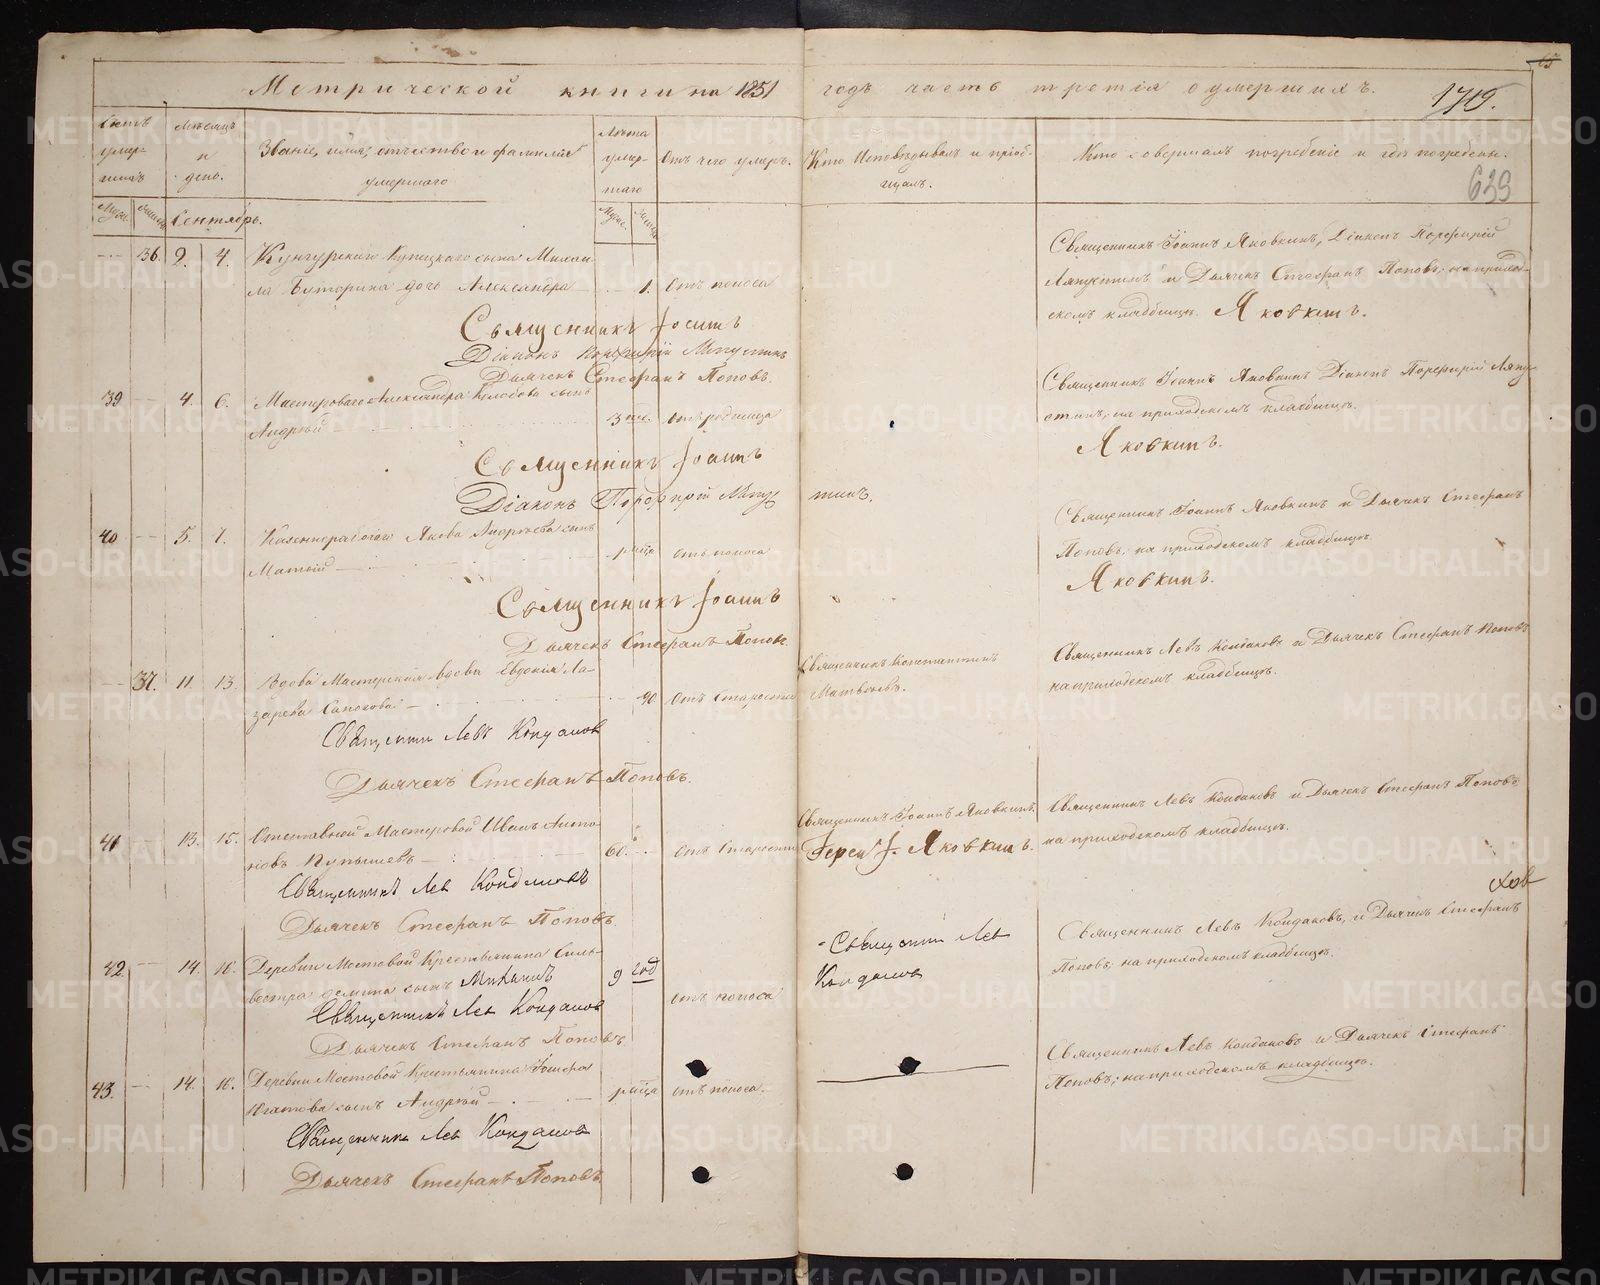 Метрической книги на 1851 годъ часть третія о умершихъ.
65
1719.
639
Счетъ умершихъ
Мѣсяцъ и день.
Званіе, имя, отчество и фамилія умершаго
Лѣта умершаго
Отъ чего умеръ.
Кто Исповѣдывалъ и пріобщалъ.
Кто совершалъ погребеніе и гдѣ погребены.
Сентябрь.
36. 2. 4. Кунгурскаго Купецкаго сына Михаила
Буторина дочь Александра 1. Отъ поноса
Священникъ Іоаннъ Яковкинъ, Діаконъ Порфирій
Ляпустинъ и Дьячекъ Стефанъ Поповъ, на приходскомъ кладбищѣ. Яковкинъ.
Священникъ Іоаннъ
Діаконъ Порфирій Ляпустинъ
Дьячекъ Стефанъ Поповъ.
39 4. 6. Мастероваго Александра сынъ
Андрей 3 отъ родимца
Священникъ Іоаннъ Яковкинъ Діаконъ Порфирій Ляпустинъ, на приходскомъ кладбищѣ.
Яковкинъ.
Священникъ Іоаннъ
Діаконъ Порфирій Ляпустинъ.
40 5. 7. Якова Андреева сынъ
Матвѣй отъ поноса
Священникъ Іоаннъ Яковкинъ и Дьячекъ Стефанъ
Поповъ, на приходскомъ кладбищѣ.
Яковкинъ.
Священникъ Іоаннъ
Дьячекъ Стефанъ Поповъ.
37. 11 13. Вдова Мастерская вдова Евдокія Лазарева 90 Отъ Старости
Священникъ Константинъ
Матвѣевъ.
Священникъ Левъ Кондаковъ и Дьячекъ Стефанъ Поповъ
на приходскомъ кладбищѣ.
Священник Левъ Кондаков
Дьячекъ Стефанъ Поповъ.
41 13. 15. Отставной Мастеровой Иванъ 60. Отъ Старости
Священникъ Іоаннъ Яковкинъ.
Іерей І. Яковкинъ.
Священникъ Левъ Кондаковъ и Дьячекъ Стефанъ Поповъ
на приходскомъ кладбищѣ.
Священникъ Лев Кондаковъ
Дьячекъ Стефанъ Поповъ.
42 14. 16. Деревни Мостовой Крестьянина Сильвестра сынъ Михаилъ 9 год отъ поноса
Священник Лев
Кондаков
Священникъ Левъ Кондаковъ, и Дьячекъ Стефанъ
Поповъ, на приходскомъ кладбищѣ.
Священник Лев Кондаков
Дьячекъ Стефанъ Поповъ
43. 14. 16. Деревни Мостовой Крестьянина
сынъ Андрей отъ поноса.
Священникъ Левъ Кондаковъ и Дьячекъ Стефанъ
Поповъ; на приходскомъ кладбищѣ.
Священник Лев Кондаков
Дьячекъ Стефанъ Поповъ
METRIKI.GASO-URAL.RU